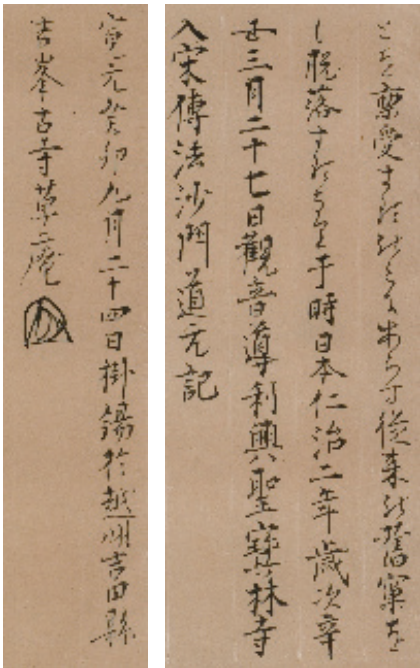 とを禀受するのみにあらす従来の舊窠を
も脱落するなり于時日本仁治二年歳次辛
丑三月二十七日觀音導利興聖寶林寺
入宋傳法沙門道元記
寛元癸卯九月二十四日掛錫於越州吉田縣
吉峯古寺草庵